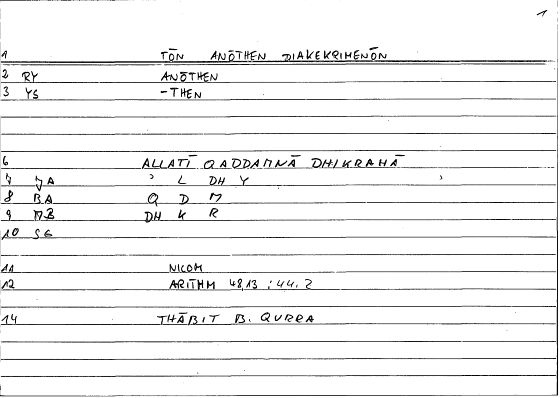 1
1 TŌN ANŌTHEN DIAKEKRIMENŌN
2 RY ANŌTHEN
3 YS -THEN
6 ALLATĪ QADDAMNĀ DHIKRAHĀ
7 JA ʾ L DH Y
8 BA Q D M
9 MB DH K R
10 SG
11 NICOM
12 ARITHM 48,13 ; 44.2
14 THĀBIT B. QURRA